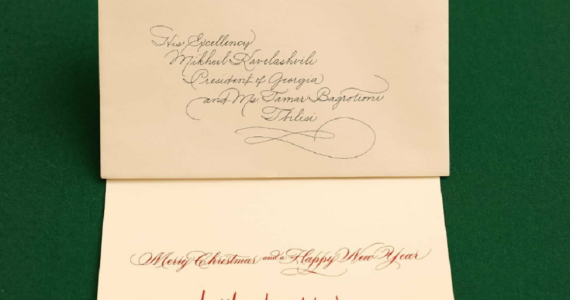 His Excellency
Mikheil Kavelashvili
President of Georgia
and Ms. Tamar Bagrationi
Tbilisi
Merry Christmas and a Happy New Year